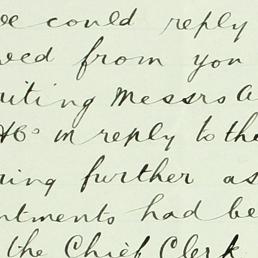 we could reply
ved from you
riting Messrs A
&Co in reply to the
ring further as
ntments had be
the Chief Clerk